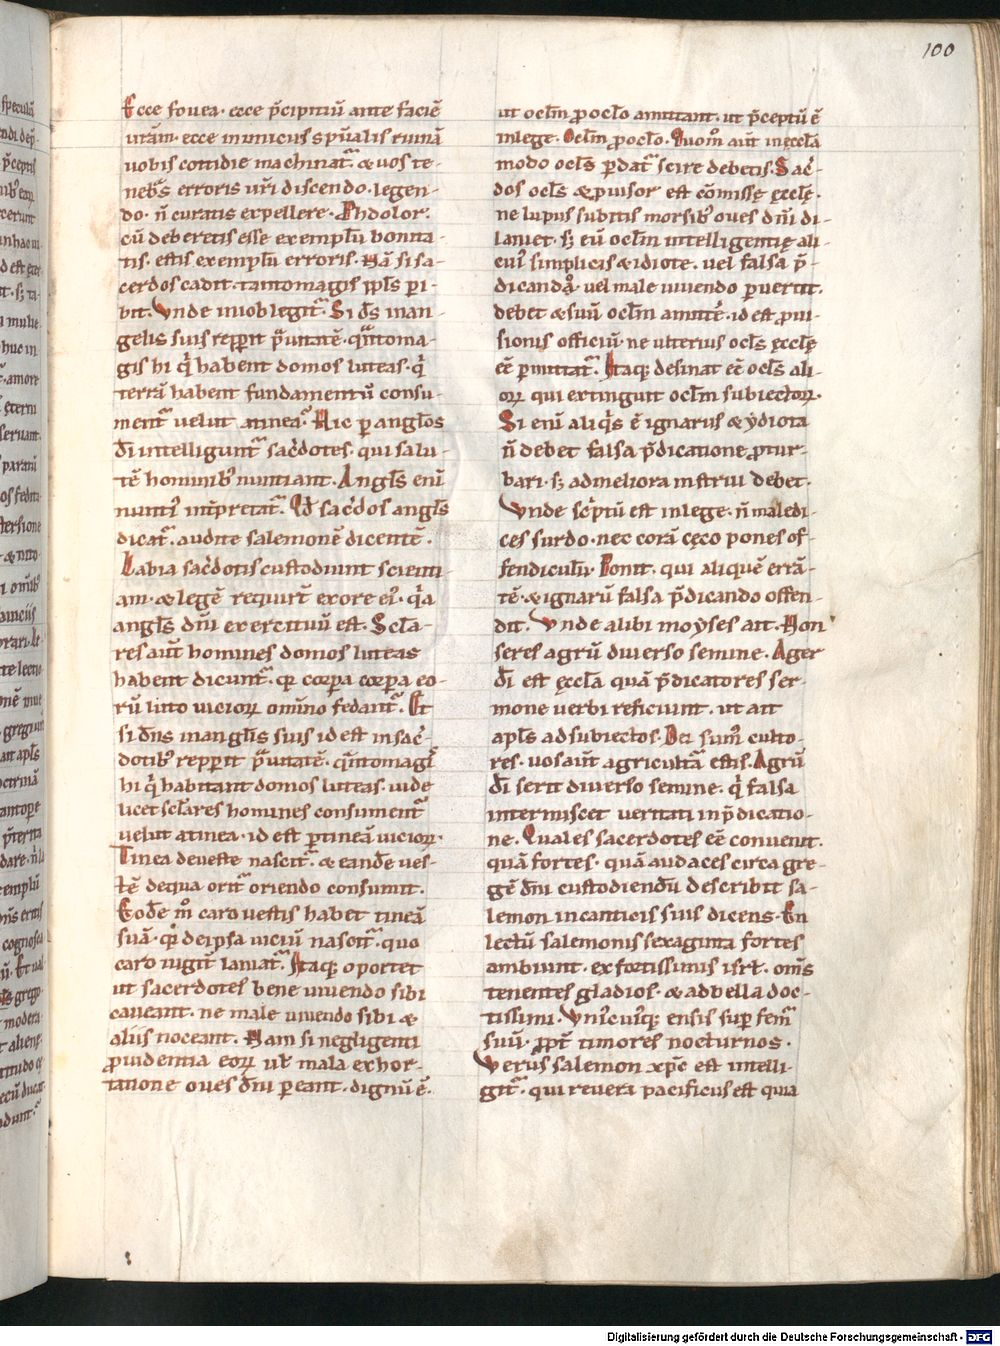 100
Ecce fouea. ecce p̄cipitiū ante faciē
urām. ecce inimicus sp̄ualis ruinā
uobis cottidie machinat᷑. & uos te-
nebͣs erroris ur̄i discendo. legen-
do. n̄ curatis expellere. Ꝓhdolor.
cū deberetis esse exemplū bonita-
tis. estis exemplū erroris. Nā si sa-
cerdos cadit. tantomagis ppl̄s ꝑi-
bit. Vnde iniob legit᷑. Si dn̄s in an-
gelis suis reppit p̄uitatē. qͣntoma-
gis hi qͥ habent domos luteas. qͥ
terrā habent fundamentū consu-
ment᷑ uelut a tinea. Hic ꝑ angl̄os
dī intelligunt᷑ sac̄dotes. qui salu-
tē hominibꝰ nuntiant. Angl̄s enī
nuntiꝰ int̄pretat᷑. Qđ sac̄dos angl̄s
dicat᷑. audite salemonē dicentē.
Labia sac̄dotis custodiunt scienti-
am. & legē requirt̄ ex ore eiꝰ. qͥa
angl̄s dnī exercituū est. Scl̄a-
res aūt homines domos luteas
habent dicunt᷑. qꝛ corpa corpa eo-
rū luto uicioꝝ om̄ino fedant᷑. Et
si dn̄s in angl̄is suis id est in sac̄-
dotibꝰ repperit p̄uitatē. qͣntomagͥ
hi qͥ habitant domos luteas. uide
licet scl̄ares homines consument᷑
uelut a tinea. id est ꝑ tineā uicioꝝ.
Tinea de ueste nascit᷑. & eandē ues-
tē de qua orit᷑ oriendo consumit.
Eodē mͦ caro uestis habet tineā
suā. qꝛ de ipsa uiciū nascit᷑. quo
caro iugit᷑ laniat᷑. Itaqꝫ oportet
ut sacerdotes bene uiuendo sibi
caueant. ne male uiuendo sibi &
aliis noceant. Nam si negligenti
ꝓuidentia eoꝝ ul̄ mala exhor-
tatione oues dnī ꝑeant. dignū ē.
ut ocl̄m ꝓ ocl̄o amittant. ut p̄ceptū ē
in lege. Ocl̄m ꝓ ocl̄o. Quom̄ aūt in ęccl̄a
modo ocl̄s ꝑdat᷑ scire debetis. Sac̄-
dos ocl̄s & ꝓuisor est cōmissę ęccl̄ę.
ne lupus subitis morsibꝰ oues dnī di-
laniet. sꝫ eū ocl̄m intelligentię ali-
cuiꝰ simplicis & idiote. uel falsa p̄-
dicandͦ. uel male uiuendo ꝑuertit.
debet & suū ocl̄m amittē. id est ꝓui-
sionis officiū. ne ulterius ocl̄s ęccl̄ę
eē ꝑmittat᷑. Itaqꝫ desinat eē ocl̄s ali-
oꝝ qui extinguit ocl̄m subiectoꝝ.
Si enī aliqͥs ē ignarus & ydiota
n̄ debet falsa p̄dicatione ꝓtur-
bari. sꝫ ad meliora instrui debet.
Vnde sc̄ptū est in lege. n̄ maledi-
ces surdo. nec corā cęco pones of-
fendiculū. Ponit. qui aliquē errā-
tē. & ignarū falsa p̄dicando offen-
dit. Vnde alibi moyses ait. Non
seres agrū diuerso semine. Ager
dī est ęccl̄a quā p̄dicatores ser-
mone uerbi reficiunt. ut ait
apl̄s ad subiectos. Dei sumꝰ culto-
res. uos aūt agricult̄a estis. Agrū
dī serit diuerso semine. qͥ falsa
intermiscet ueritati in p̄dicatio-
ne. Quales sacerdotes eē conuenit.
quā fortes. quā audaces circa gre-
gē dnī custodiendū describit sa-
lemon in canticis suis dicens. En
lectū salemonis sexaginta fortes
ambiunt. ex fortissimis isrl̄. om̄s
tenentes gladios. & ad bella doc-
tissimi. Vniꝰcuiꝰqꝫ ensis sup fem̄
suū. ꝓpt̄ timores nocturnos.
Verus salemon xp̄c est intelli-
git᷑. qui reuera pacificus est quia
Digitalisierung gefördert durch die Deutsche Forschungsgemeinschaft - DFG